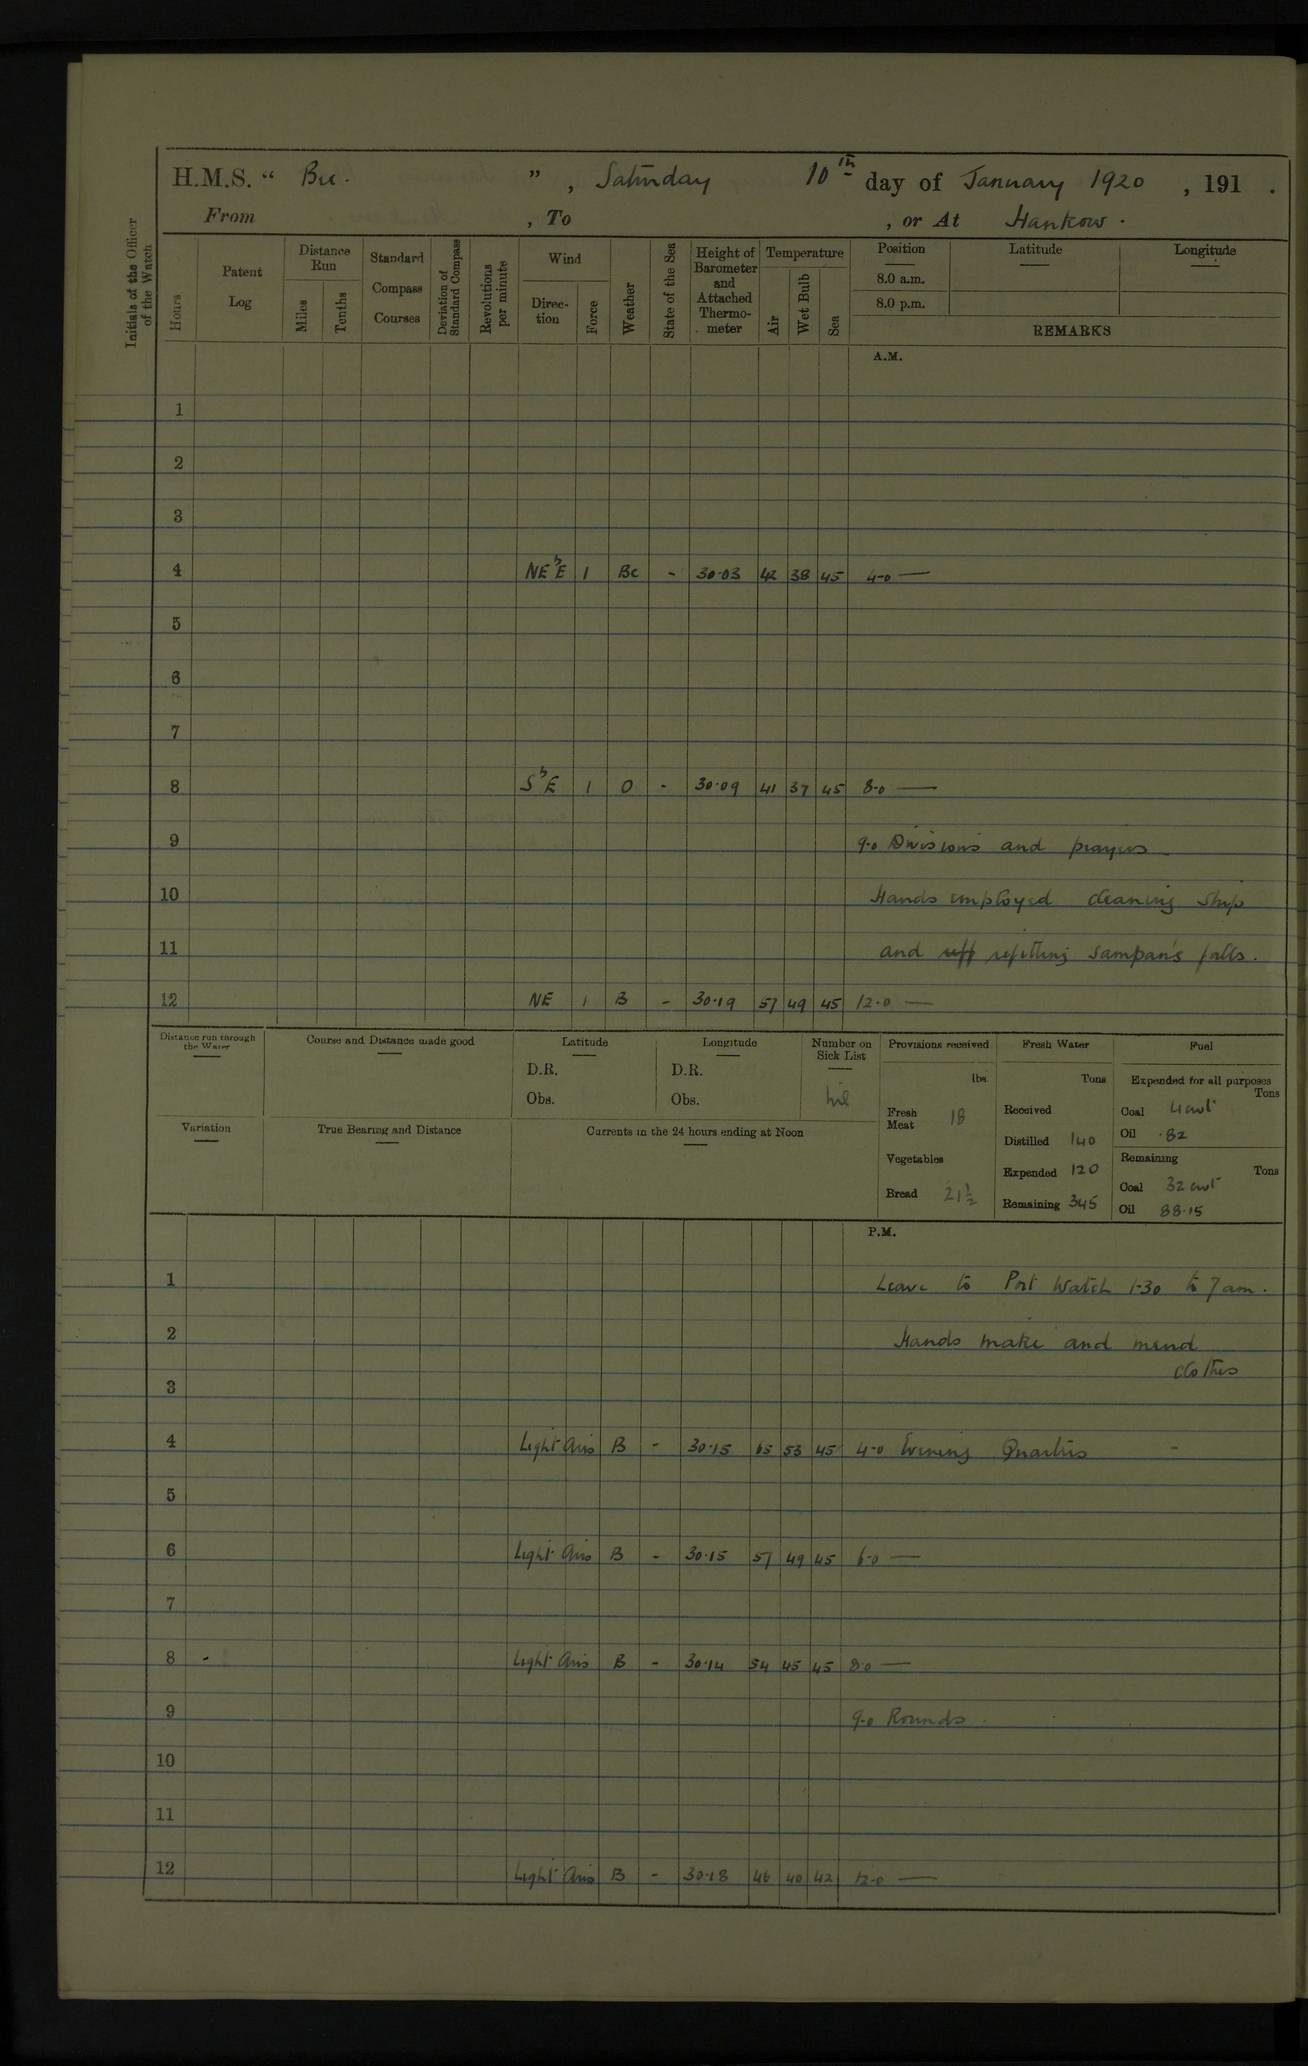 H.M.S. “ Bee. ” , Saturday 10th day of January 1920 , 191 .
From , To , or At Hankow .
Initials of the Officer of the Watch
Hours
Patent Log
Distance Run
Miles
Tenths
Standard Compass Courses
Deviation of Standard Compass
Revolutions per minute
Wind
Direction
Force
Weather
State of the Sea
Height of Barometer and Attached Thermometer
Temperature
Air
Wet Bulb
Sea
Position Latitude Longitude
8.0 a.m.
8.0 p.m.
REMARKS
A.M.
1
2
3
4 NE b E 1 Bc - 30.03 42 38 45 4-0 —
5
6
7
8 S b E 1 O - 30.09 41 37 45 8-0 —
9 9-0 Divisions and prayers
10 Hands employed cleaning ship
11 and reff refitting sampan's falls.
12 NE 1 B - 30.19 57 49 45 12-0 —
Distance run through the Water
Course and Distance made good
Latitude
D.R.
Obs.
Longitude
D.R.
Obs.
Number on Sick List
nil
Variation
True Bearing and Distance
Currents in the 24 hours ending at Noon
Provisions received
lbs.
Fresh Meat 18
Vegetables
Bread 21½
Fresh Water
Tons
Received
Distilled 140
Expended 120
Remaining 345
Fuel
Expended for all purposes
Tons
Coal 4 cwt
Oil .82
Remaining
Tons
Coal 32 cwt
Oil 88.15
P.M.
1 Leave to Port Watch 1-30 to 7 am.
2 Hands make and mend
clothes
3
4 Light Airs B - 30.15 65 53 45 4-0 Evening Quarters -
5
6 Light Airs B - 30.15 57 49 45 6-0 —
7
8 Light Airs B - 30.14 54 45 45 8-0 —
9 9-0 Rounds.
10
11
12 Light Airs B - 30.18 46 40 42 12-0 —